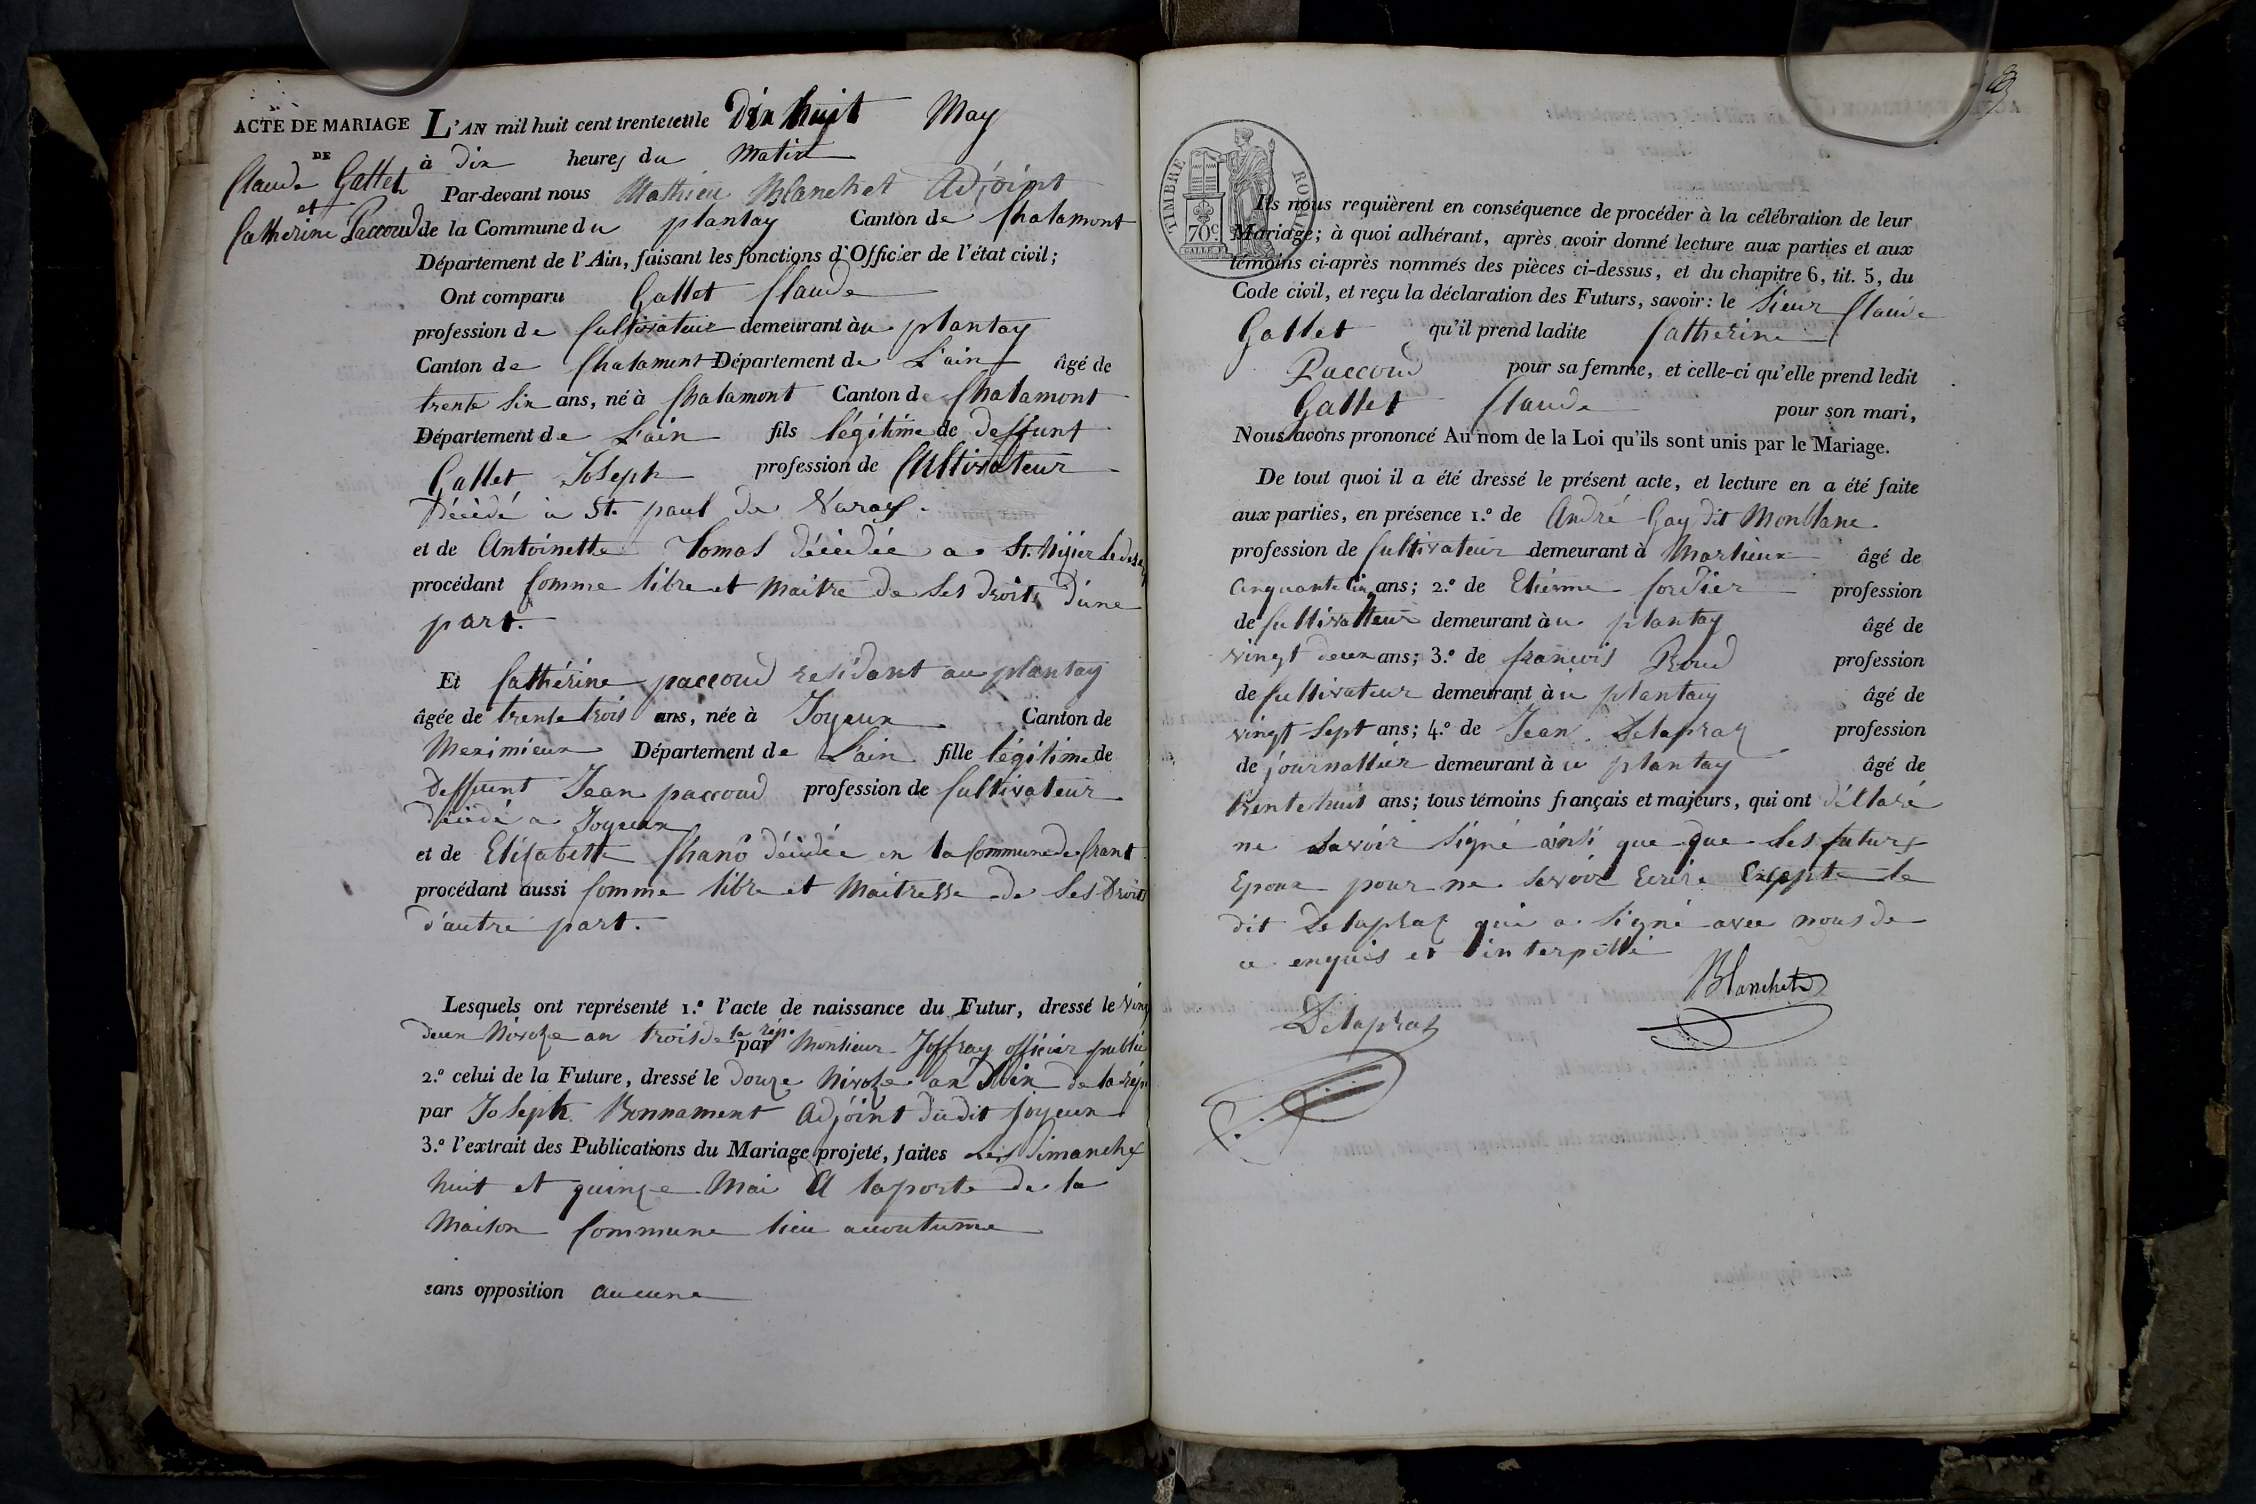 ACTE DE MARIAGE
DE
Claude Gallet
et
Catherine Paccoud
L'AN mil huit cent trente et le Dix huit May
à Dix heures du Matin
Par-devant nous Mathieu Blanchet Adjoint
de la Commune du plantay Canton de Chalamont
Département de l'Ain, faisant les fonctions d'Officier de l'état civil;
Ont comparu Gallet Claude
profession de Cultivateur demeurant àu plantay
Canton de Chalamont Département de L'ain âgé de
trente Six ans, né à Chalamont Canton de Chalamont
Département de L'ain fils légitime de deffunt
Gallet Joseph profession de Cultivateur
Décédé à St. paul de Varax.
et de Antoinette Tomas décédée a St. Nizier le des
procédant Comme libre et Maitre de Ses droits d'une
part.
Et Cathérine paccoud residant au plantay
âgée de trente trois ans, née à Joyeux Canton de
Meximieux Département de L'ain fille légitime de
Deffunt Jean paccoud profession de Cultivateur
décédé a Joyeux
et de Elisabette Chanô décédée en la Commune de Crant
procédant aussi Comme libre et Maitresse de Ses Droits
d'autre part.
Lesquels ont représenté 1.º l'acte de naissance du Futur, dressé le Ving
deux Nivoze an trois de la rép. par Monsieur Joffray officier public
2.º celui de la Future, dressé le Douze Nivoze an Six de la rép
par Joseph Bonnament Adjoint dudit Joyeux
3.º l'extrait des Publications du Mariage projeté, faites Les Dimanches
huit et quinze Mai A la porte de la
Maison Commune lieu accoutume
sans opposition aucune
TIMBRE ROYAL
70c.
Ils nous requièrent en conséquence de procéder à la célébration de leur
Mariage; à quoi adhérant, après avoir donné lecture aux parties et aux
témoins ci-après nommés des pièces ci-dessus, et du chapitre 6, tit. 5, du
Code civil, et reçu la déclaration des Futurs, savoir: le Sieur Claude
Gallet qu'il prend ladite Catherine
Paccoud pour sa femme, et celle-ci qu'elle prend ledit
Gallet Claude pour son mari,
Nous avons prononcé Au nom de la Loi qu'ils sont unis par le Mariage.
De tout quoi il a été dressé le présent acte, et lecture en a été faite
aux parties, en présence 1.º de André Gay dit Monblanc
profession de Cultivateur demeurant à Marlieux âgé de
Cinquante Six ans; 2.º de Etienne Cordier profession
de Cultivatteur demeurant àu plantay âgé de
vingt deux ans; 3.º de françois Roud profession
de Cultivateur demeurant àu plantay âgé de
vingt Sept ans; 4.º de Jean Delapraz profession
de journallier demeurant àu plantay âgé de
trente huit ans; tous témoins français et majeurs, qui ont déclaré
ne savoir Signé ainsi que que les futurs
Epoux pour ne Savoir Ecrire Excepte le
dit Delapraz qui a Signé avec nous de
ce enquis et interpellé
Blanchet
Delapraz